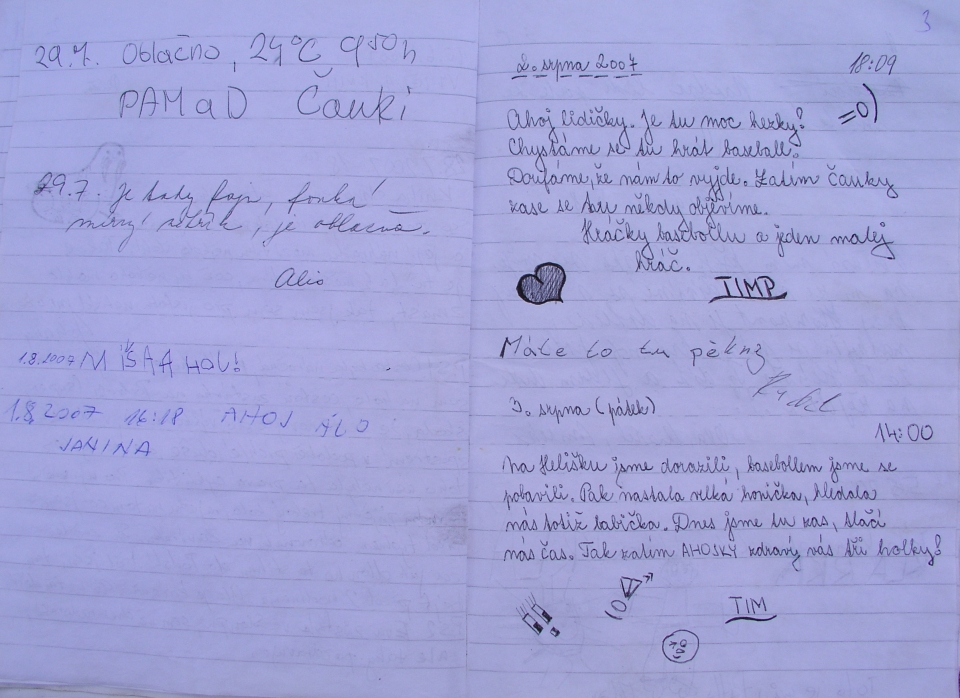 29.7. Oblačno, 24°C 9⁵⁰h
PAM a D Čauki
29.7. je tady fajn, fouká
mírný větřík, je oblačno.
1.8.2007 MÍŠA AHOJ!
1.8 2007 16:18 AHOJ
JANINA
3
2. srpna 2007
18:09
Ahoj lidičky. Je tu moc hezky!
=0)
Chystáme se tu hrát baseball.
Doufáme, že nám to vyjde. Zatím čauky
zase se tu někdy objevíme.
Hračky baseballu a jeden malej
hráč.
TIMP
Máte to tu pěkný
3. srpna (pátek)
14:00
Na Helišku jsme dorazili, basebollem jsme se
pobavili. Pak nastala velká honička, hledala
nás totiž babička. Dnes jsme tu zas, tlačí
nás čas. Tak zatím AHOJKY zdraví vás tři holky!
TIM